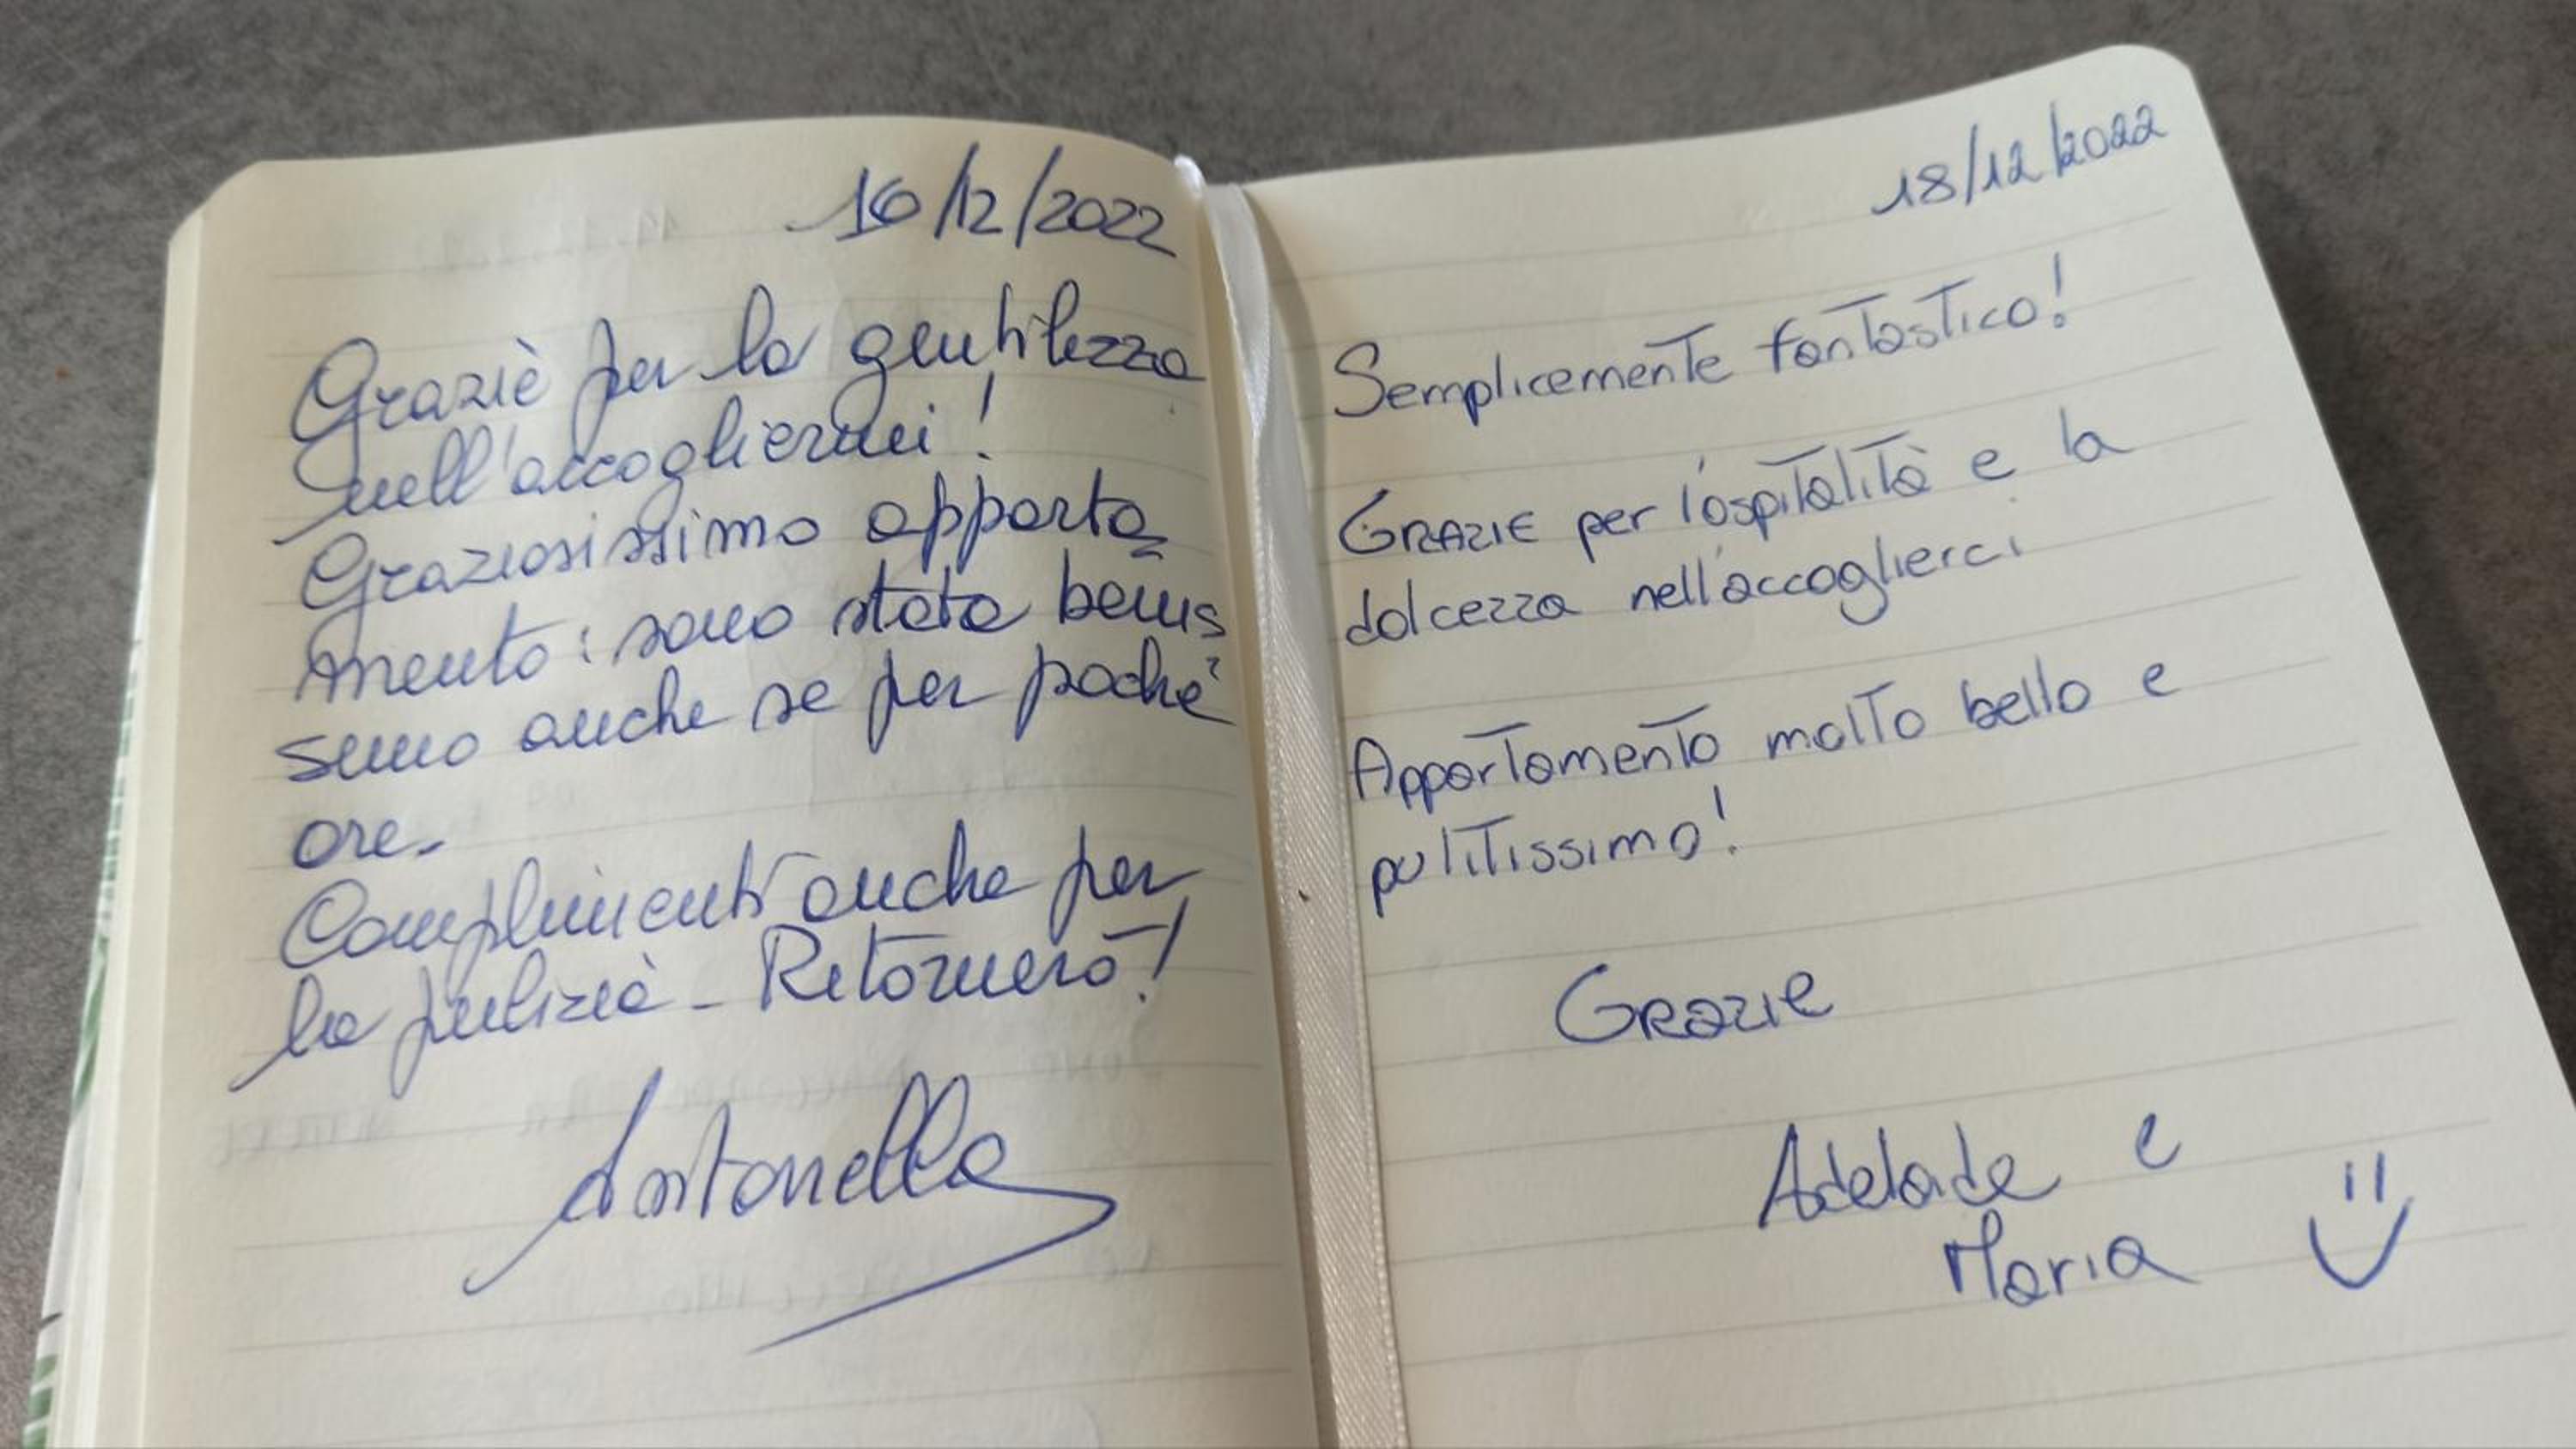 16/12/2022
Grazie per la gentilezza
nell'accoglierci!
Graziosissimo apparta
mento: sono stata benis
simo anche se per poche
ore.
Complimenti anche per
la pulizia - Ritornerò!
Antonella
18/12/2022
Semplicemente fantastico!
GRAZIE per l'ospitalità e la
dolcezza nell'accoglierci
Appartamento molto bello e
pulitissimo!
GRAZIE
Adelaide e
Maria